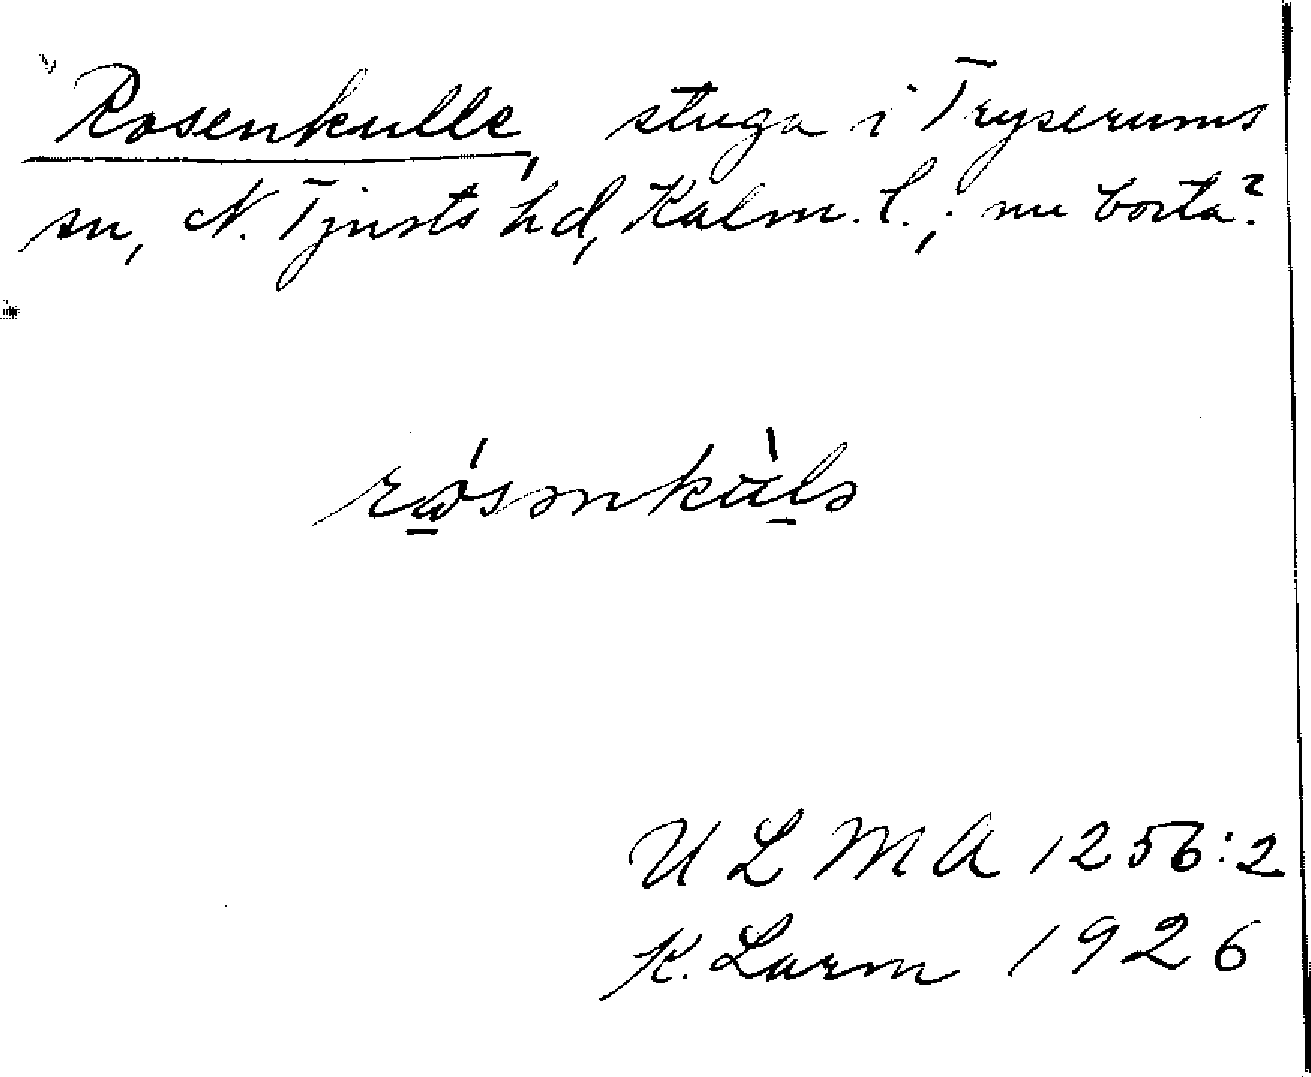 Rosenkulle, stuga i Tryserums
sn, N. Tjusts hd, Kalm. l.; nu borta?
rώsənkùlə
ULMA 1256:2
K. Larm 1926